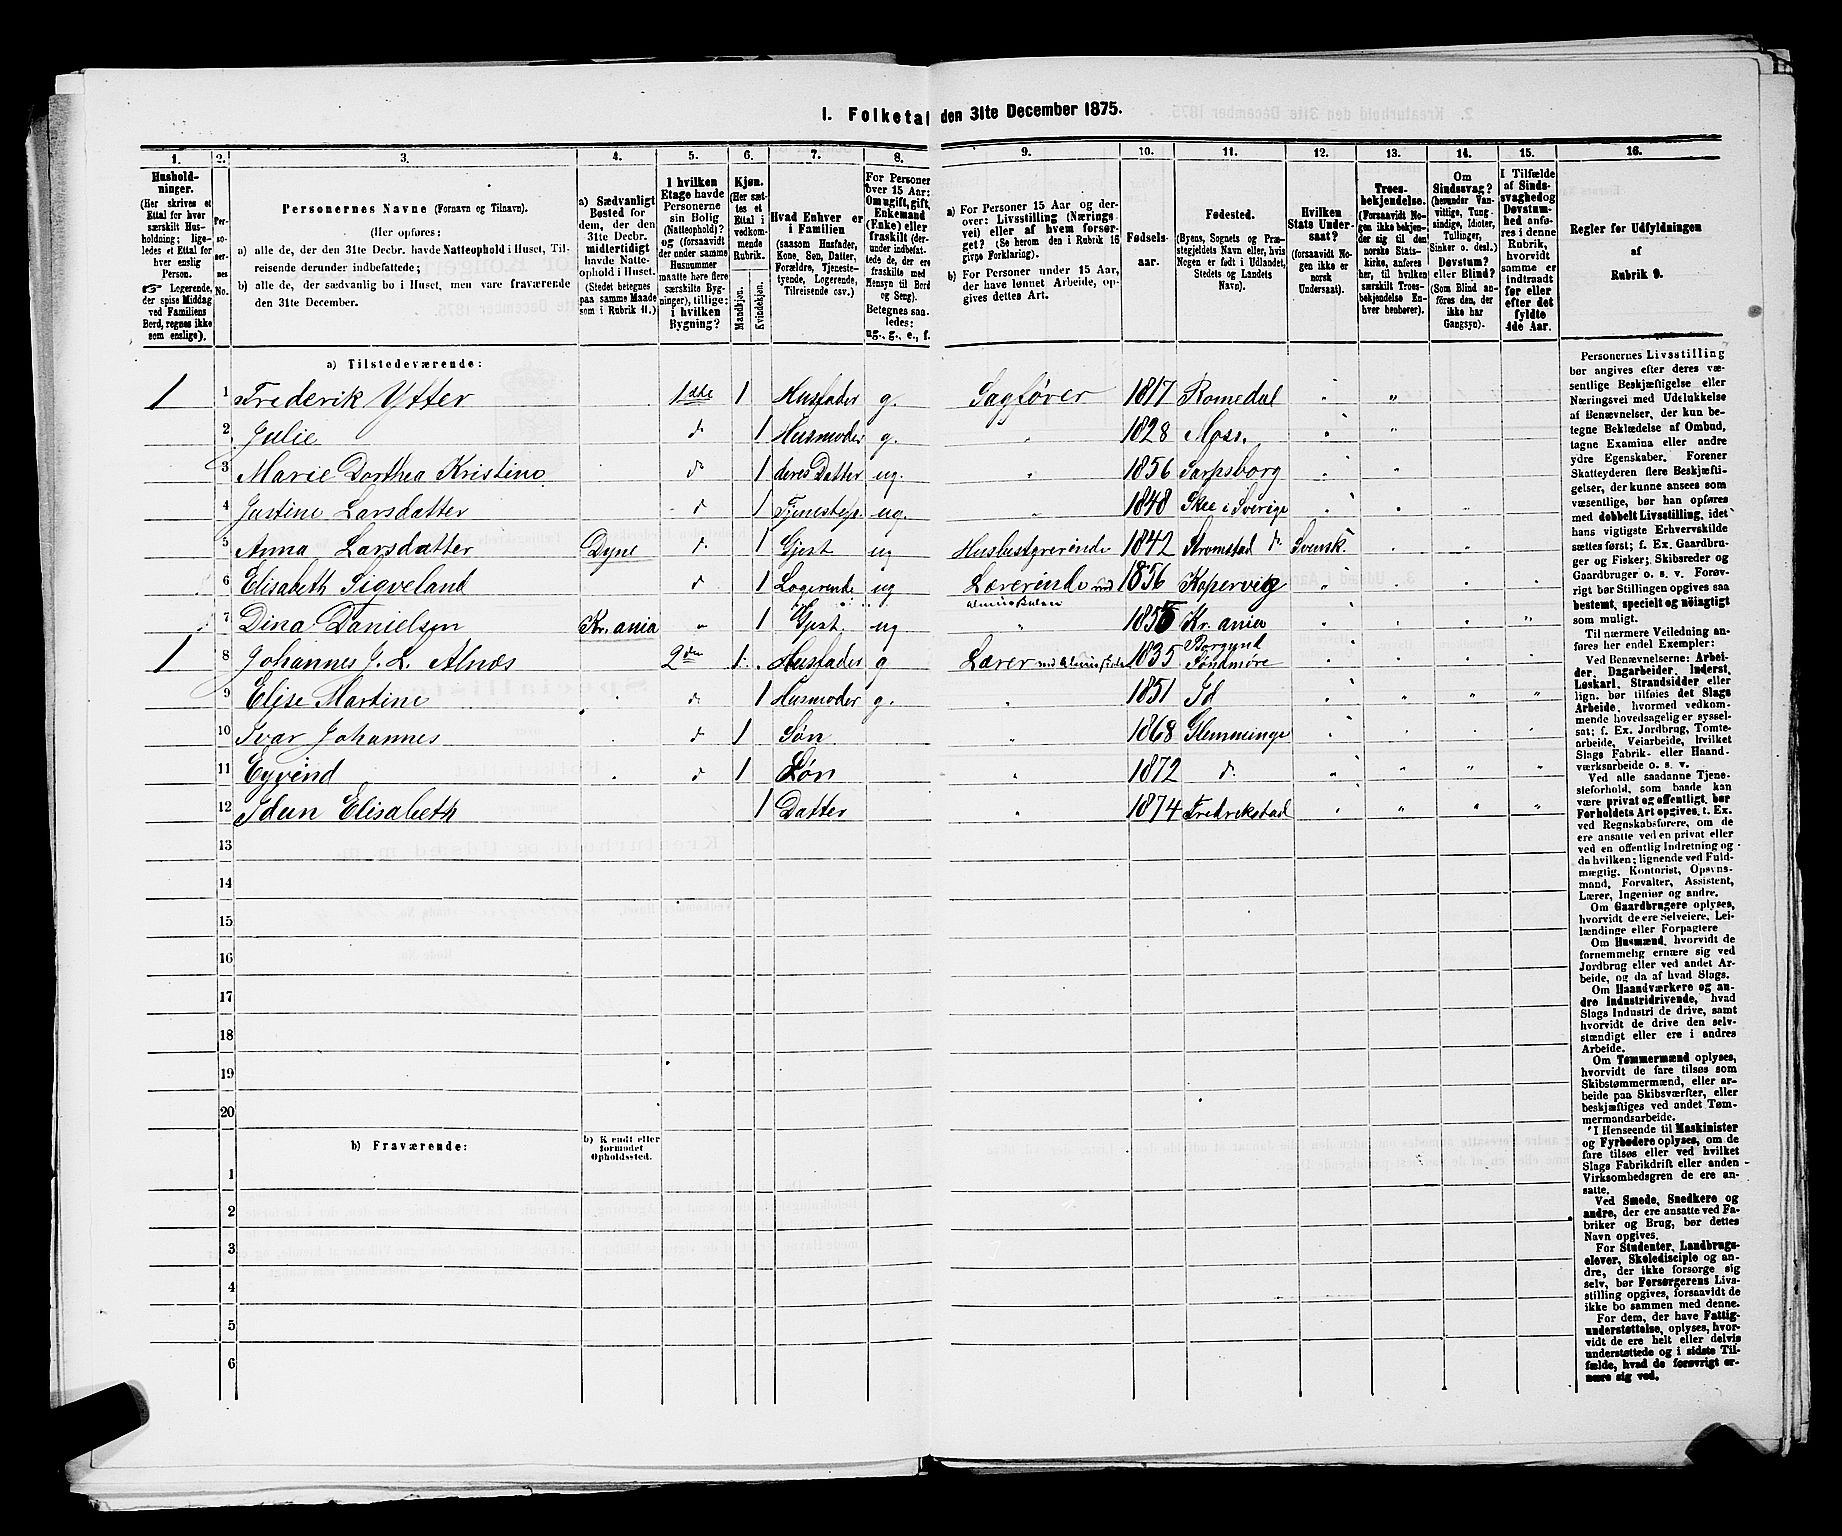 1. Folketal den 31te December 1875.
1. 2. 3. 4. 5. 6. 7. 8. 9. 10. 11. 12. 13. 14. 15. 16.
Hushold-
ninger.
(Her skrives et
Ettal for hver
særskilt Hus-
holdning; lige-
ledes et Ettal for
hver enslig
Person.
Logerende,
der spise Middag
ved Familiens
Bord, regnes ikke
som enslige).
Per-
so-
ner-
nes
No.
Personernes Navne (Fornavn og Tilnavn).
(Her opføres:
a) alle de, der den 31te Decbr. havde Natteophold i Huset, Til-
reisende derunder indbefattede;
b) alle de, der sædvanlig bo i Huset, men vare fraværende
den 31te December.
a) Sædvanligt
Bosted for
dem, der den
31te Decbr.
midlertidigt
havde Natte-
ophold i Huset.
(Stedet betegnes
paa samme Maade
som i Rubrik 11.)
I hvilken
Etage havde
Personerne
sin Bolig
(Natteophold)?
og (forsaavidt
der under samme
Husnummer
maatte høre flere
særskilte Byg-
ninger), tillige:
i hvilken
Bygning?
Kjøn.
(Her sæt-
tes et
Ettal i
vedkom-
mende
Rubrik.
Mandkjøn.
Kvindekjøn.
Hvad Enhver er
i Familien
(saasom Husfader,
Kone, Søn, Datter,
Forældre, Tjeneste-
tyende, Logerende,
Tilreisende osv.)
For Personer
over 15 Aar:
Om ugift, gift,
Enkemand
(Enke) eller
fraskilt (der-
under indbefat-
tede de, der ere
fraskilte med
Hensyn til Bord
og Seng).
Betegnes saa-
ledes:
ug., g., e., f.
a) For Personer 15 Aar og der-
over: Livsstilling (Nærings-
vei) eller af hvem forsør-
get? (Se herom den i Rubrik 16
givne Forklaring).
b) For Personer under 15 Aar,
der have lønnet Arbeide, op-
gives dettes Art.
Fødsels-
aar.
Fødested.
(Byens, Sognets og Præ-
stegjeldets Navn eller, hvis
Nogen er født i Udlandet,
Stedets og Landets
Navn).
Hvilken
Stats Under-
saat?
(forsaavidt No-
gen ikke er
norsk
Undersaat).
Troes-
bekjendelse.
(Forsaavidt No-
gen ikke bekjen-
der sig til den
norske Stats-
kirke, anføres
her, til hvilken
særskilt Troes-
bekjendelse En-
hver henhører).
Om
Sindssvag?
(herunder Van-
vittige, Tung-
sindige, Idioter,
Tullinger,
Sinker o. desl.)
Døvstum?
eller Blind?
(Som Blind an-
føres den, der
ikke har
Gangsyn).
I Tilfælde
af Sinds-
svaghed og
Døvstum-
hed anfø-
res i denne
Rubrik,
hvorvidt
samme er
indtraadt
før eller
efter det
fyldte
4de Aar.
Regler for Udfyldningen
af
Rubrik 9.
a) Tilstedeværende:
1 1 Frederik Ytter 1ste 1 Husfader g. Sagfører 1817 Romedal
2 Julie d 1 Husmoder g. " 1828 Moss.
3 Marie Dorthea Kristine d 1 deres Datter ug. " 1856 Sarpsborg
4 Justine Larsdatter d 1 Tjenestep. ug. " 1848 Skee i Sverige
5 Anna Larsdatter Dyne d 1 Gjest ug 1842 Strømstad d Svensk.
6 Elisabeth Sigveland d 1 Logerende ug Lærerinde ved 1856 Kopervig
7 Dina Danielsen Kr.ania " 1 Gjest ug " 1855 Kr.ania
1 8 Johannes J. L. Alnæs 2den 1 Husfader g Lærer 1835 Borgund Søndmøre
9 Elise Martine d 1 Husmoder g. " 1851 Id
10 Ivar Johannes d 1 Søn " 1868 Glemminge
11 Eyvind d 1 Søn " 1872 d.
12 Idun Elisabeth 1 Datter " 1874 Fredrikstad
13
14
15
16
17
18
19
20
b) Fraværende:
b) Kjendt eller
formodet
Opholdssted.
1
2
3
4
5
6
Personernes Livsstilling
bør angives efter deres væ-
sentlige Beskjæftigelse eller
Næringsvei med Udelukkelse
af Benævnelser, der kun be-
tegne Beklædelse af Ombud,
tagne Examina eller andre
ydre Egenskaber. Forener
Skatteyderen flere Beskjæfti-
gelser, der kunne ansees som
væsentlige, bør han opføres
med dobbelt Livsstilling, idet
hans vigtigste Erhvervskilde
sættes først; f. Ex. Gaardbru-
ger og Fisker; Skibsreder og
Gaardbruger o. s. v. Forøv-
rigt bør Stillingen opgives saa
bestemt, specielt og nøiagtigt
som muligt.
Til nærmere Veiledning an-
føres her endel Exempler:
Ved Benævnelserne: Arbei-
der, Dagarbeider, Inderst,
Løskarl, Strandsidder eller
lign. bør tilføies det Slags
Arbeide, hvormed vedkom-
mende hovedsagelig er syssel-
sat; f. Ex. Jordbrug, Tomte-
arbeide, Veiarbeide, hvilket
Slags Fabrik- eller Haand-
værksarbeide o. s. v.
Ved alle saadanne Tjene-
steforhold, som baade kan
være privat og offentligt, bør
Forholdets Art opgives, t. Ex.
ved Regnskabsførere, om de
ere ansatte ved en privat eller
ved en offentlig Indretning og
da hvilken; lignende ved Fuld-
mægtig, Kontorist, Opsyns-
mand, Forvalter, Assistent,
Lærer, Ingeniør og andre.
Om Gaardbrugere oplyses,
hvorvidt de ere Selveiere, Lei-
lændinge eller Forpagtere
Om Husmænd, hvorvidt de
fornemmelig ernære sig ved
Jordbrug eller ved andet Ar-
beide, og da af hvad Slags.
Om Haandværkere og an-
dre Industridrivende, hvad
Slags Industri de drive, samt
hvorvidt de drive den selv-
stændigt eller ere i andres
Arbeide.
Om Tømmermænd oplyses,
hvorvidt de fare tilsøs som
Skibstømmermænd, eller ar-
beide paa Skibsværfter, eller
beskjæftiges ved andet Tøm-
mermandsarbeide.
I Henseende til Maskinister
og Fyrbødere oplyses, om de
fare tilsøs eller ved hvilket
Slags Fabrikdrift eller anden
Virksomhedsgren de ere an-
satte.
Ved Smede, Snedkere og
andre, der ere ansatte ved Fa-
briker og Brug, bør dettes
Navn opgives.
For Studenter, Landbrugs-
elever, Skoledisciple og an-
dre, der ikke forsørge sig
selv, bør Forsørgerens Livs-
stilling opgives, forsaavidt de
ikke bo sammen med denne.
For dem, der have Fattig-
understøttelse, oplyses, hvor-
vidt de ere helt eller delvis
understøttede og i sidste Til-
fælde, hvad de forøvrigt er-
nære sig ved.